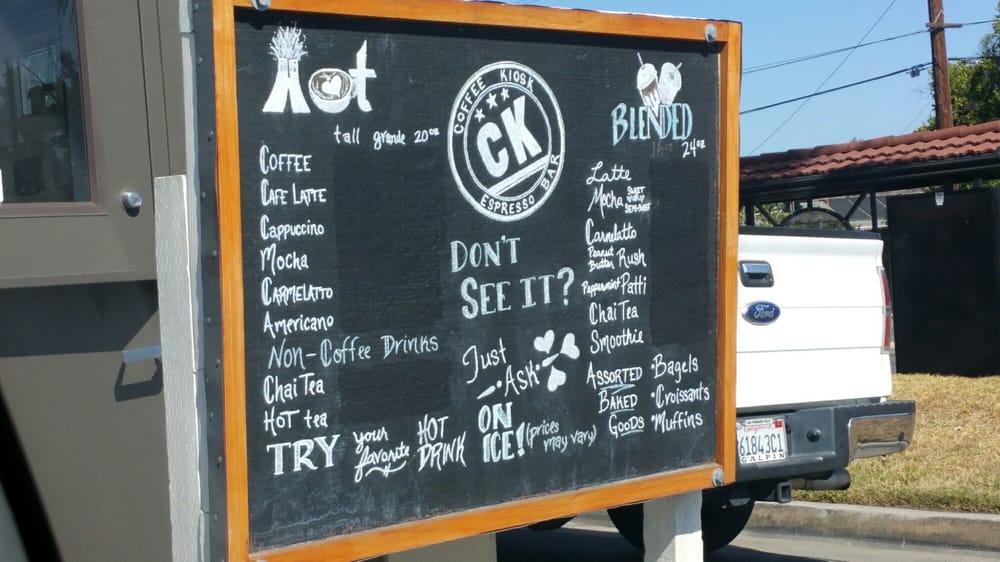 Hot
tall grande 20oz
COFFEE
CAFE LATTE
Cappuccino
Mocha
CARMELATTO
Americano
Non-Coffee Drinks
Chai Tea
HOT tea
TRY your favorite HOT DRINK ON ICE! (prices may vary)
COFFEE KIOSK
CK
ESPRESSO BAR
DON'T
SEE IT?
Just
Ask
BLENDED
16oz 24oz
Latte
Mocha SWEET
SEMI-SWEET
Carmelatto
Peanut Butter Rush
Peppermint Patti
Chai Tea
Smoothie
ASSORTED
BAKED
GOODS
•Bagels
•Croissants
•Muffins
Ford
61843C1
GALPIN